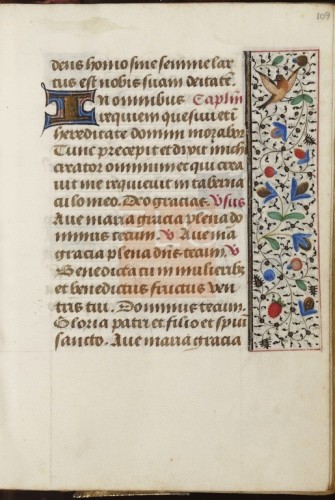 109
deus homo sine semine lar
tus est nobis suam deitatē
In omnibus Capl'm
requiem quesivi et i
hereditate domini morabor
Tunc precepit et dixit michi
creator omnium et qui crea
vit me requievit in taberna
culo meo. Deo gracias. Vsus
Ave maria gracia plena do
minus tecum. V Ave ma
gracia plena dn̄s tecum. V
Benedicta tu in mulieribꝫ
et benedictus fructus ven
tris tui. Dominus tecum.
Gloria patri et filio et spūi
sancto. Ave maria gracia